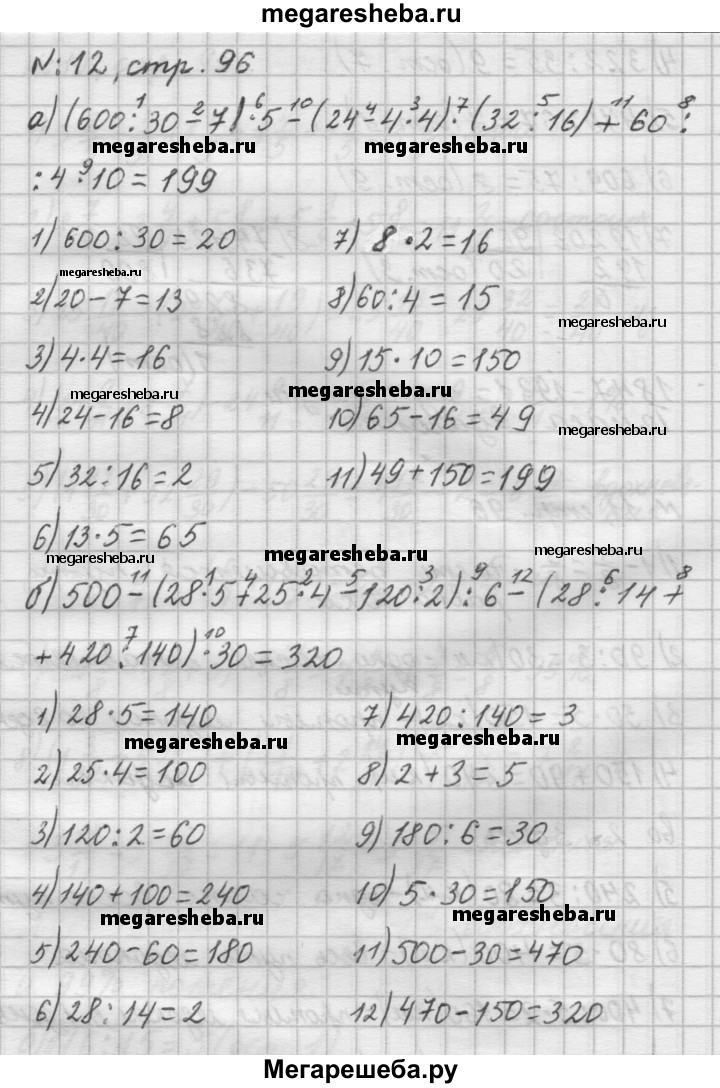 megaresheba.ru
№:12, стр. 96
а) (600:30-7)·5-(24-4·4)·(32:16)+60:
1 2 6 10 4 3 7 5 11 8
megaresheba.ru megaresheba.ru
:4·10=199
9
1) 600:30=20 7) 8·2=16
megaresheba.ru
2) 20-7=13 8) 60:4=15
megaresheba.ru
3) 4·4=16 9) 15·10=150
megaresheba.ru megaresheba.ru
4) 24-16=8 10) 65-16=49
megaresheba.ru
5) 32:16=2 11) 49+150=199
6) 13·5=65
megaresheba.ru megaresheba.ru megaresheba.ru
б) 500-(28·5+25·4-120:2):6-(28:14+
11 1 4 2 5 3 9 12 6 8
+420:140)·30=320
7 10
1) 28·5=140 7) 420:140=3
megaresheba.ru megaresheba.ru
2) 25·4=100 8) 2+3=5
3) 120:2=60 9) 180:6=30
4) 140+100=240 10) 5·30=150
megaresheba.ru megaresheba.ru
5) 240-60=180 11) 500-30=470
6) 28:14=2 12) 470-150=320
Мегарешеба.ру